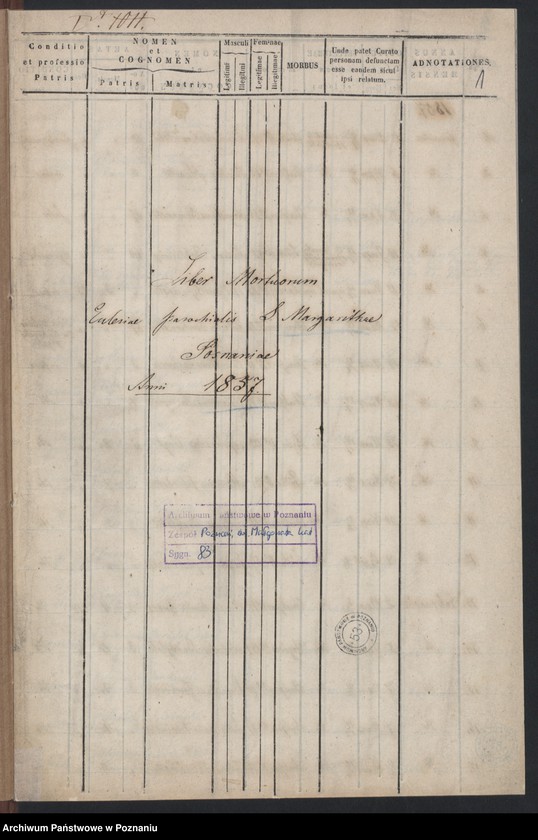 Conditio
et professio
Patris
NOMEN
et
COGNOMEN
Patris
Matris
Masculi
Legitimi
Illegitimi
Femenae
Legitimae
Illegitimae
MORBUS
Unde patet Curato
personam defunctam
esse eandem sicut
ipsi relatum.
ADNOTATIONES.
1
Liber Mortuorum
Ecclesiae parochialis S Margarethae
Posnaniae
Anni 1857
Archiwum Państwowe w Poznaniu
Zespół Poznań, św. Małgorzata
Sygn. 83
ARCHIWUM PAŃSTWOWE W POZNANIU
53
Archiwum Państwowe w Poznaniu